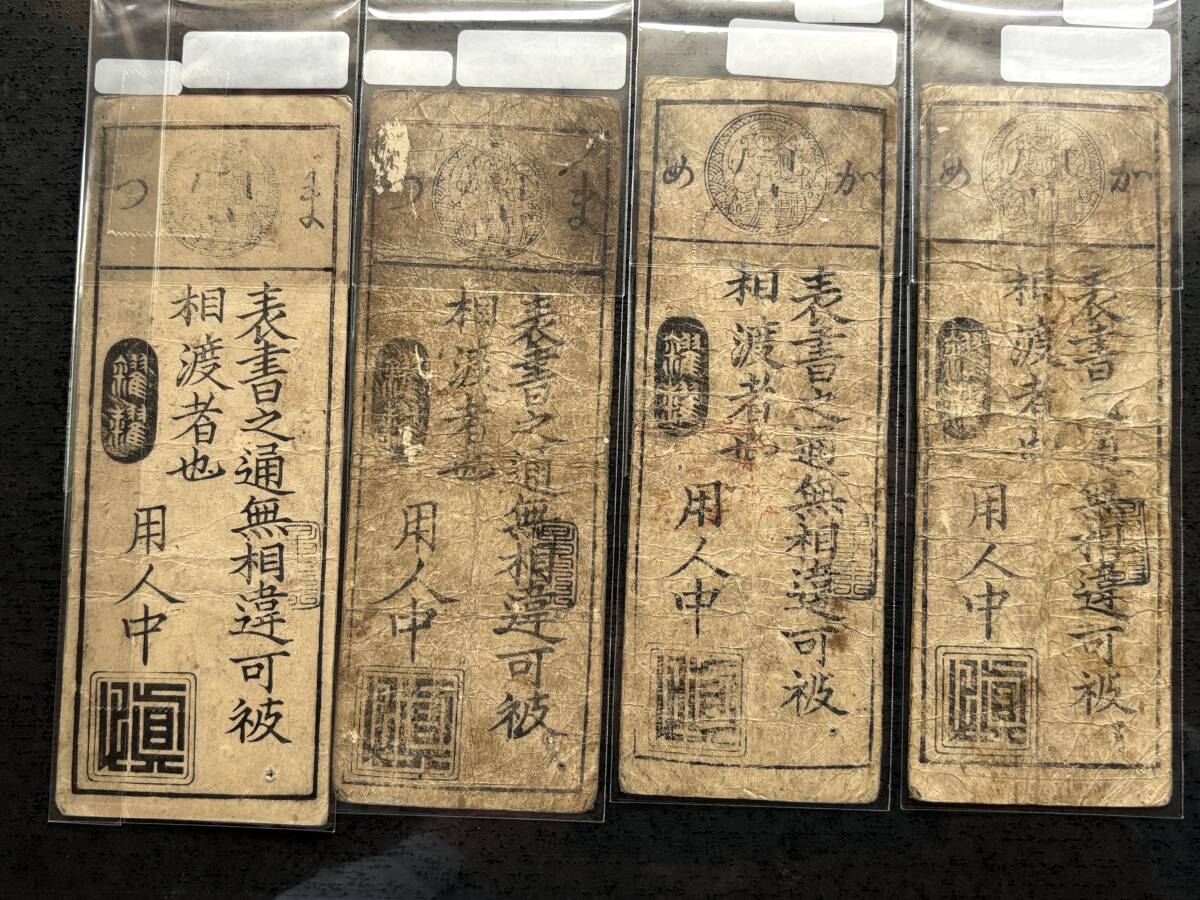 ま
つ
表書之通無相違可被
相渡者也
用人中
ま
つ
表書之通無相違可被
相渡者也
用人中
か
め
表書之通無相違可被
相渡者也
用人中
か
め
表書之通無相違可被
相渡者也
用人中